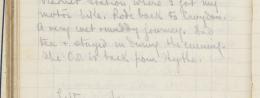 Station where I got my
motor bike. Rode back to Croydon.
A very wet & muddy journey. Had
tea & stayed in during the evening.
The O.O. is back from Hythe.